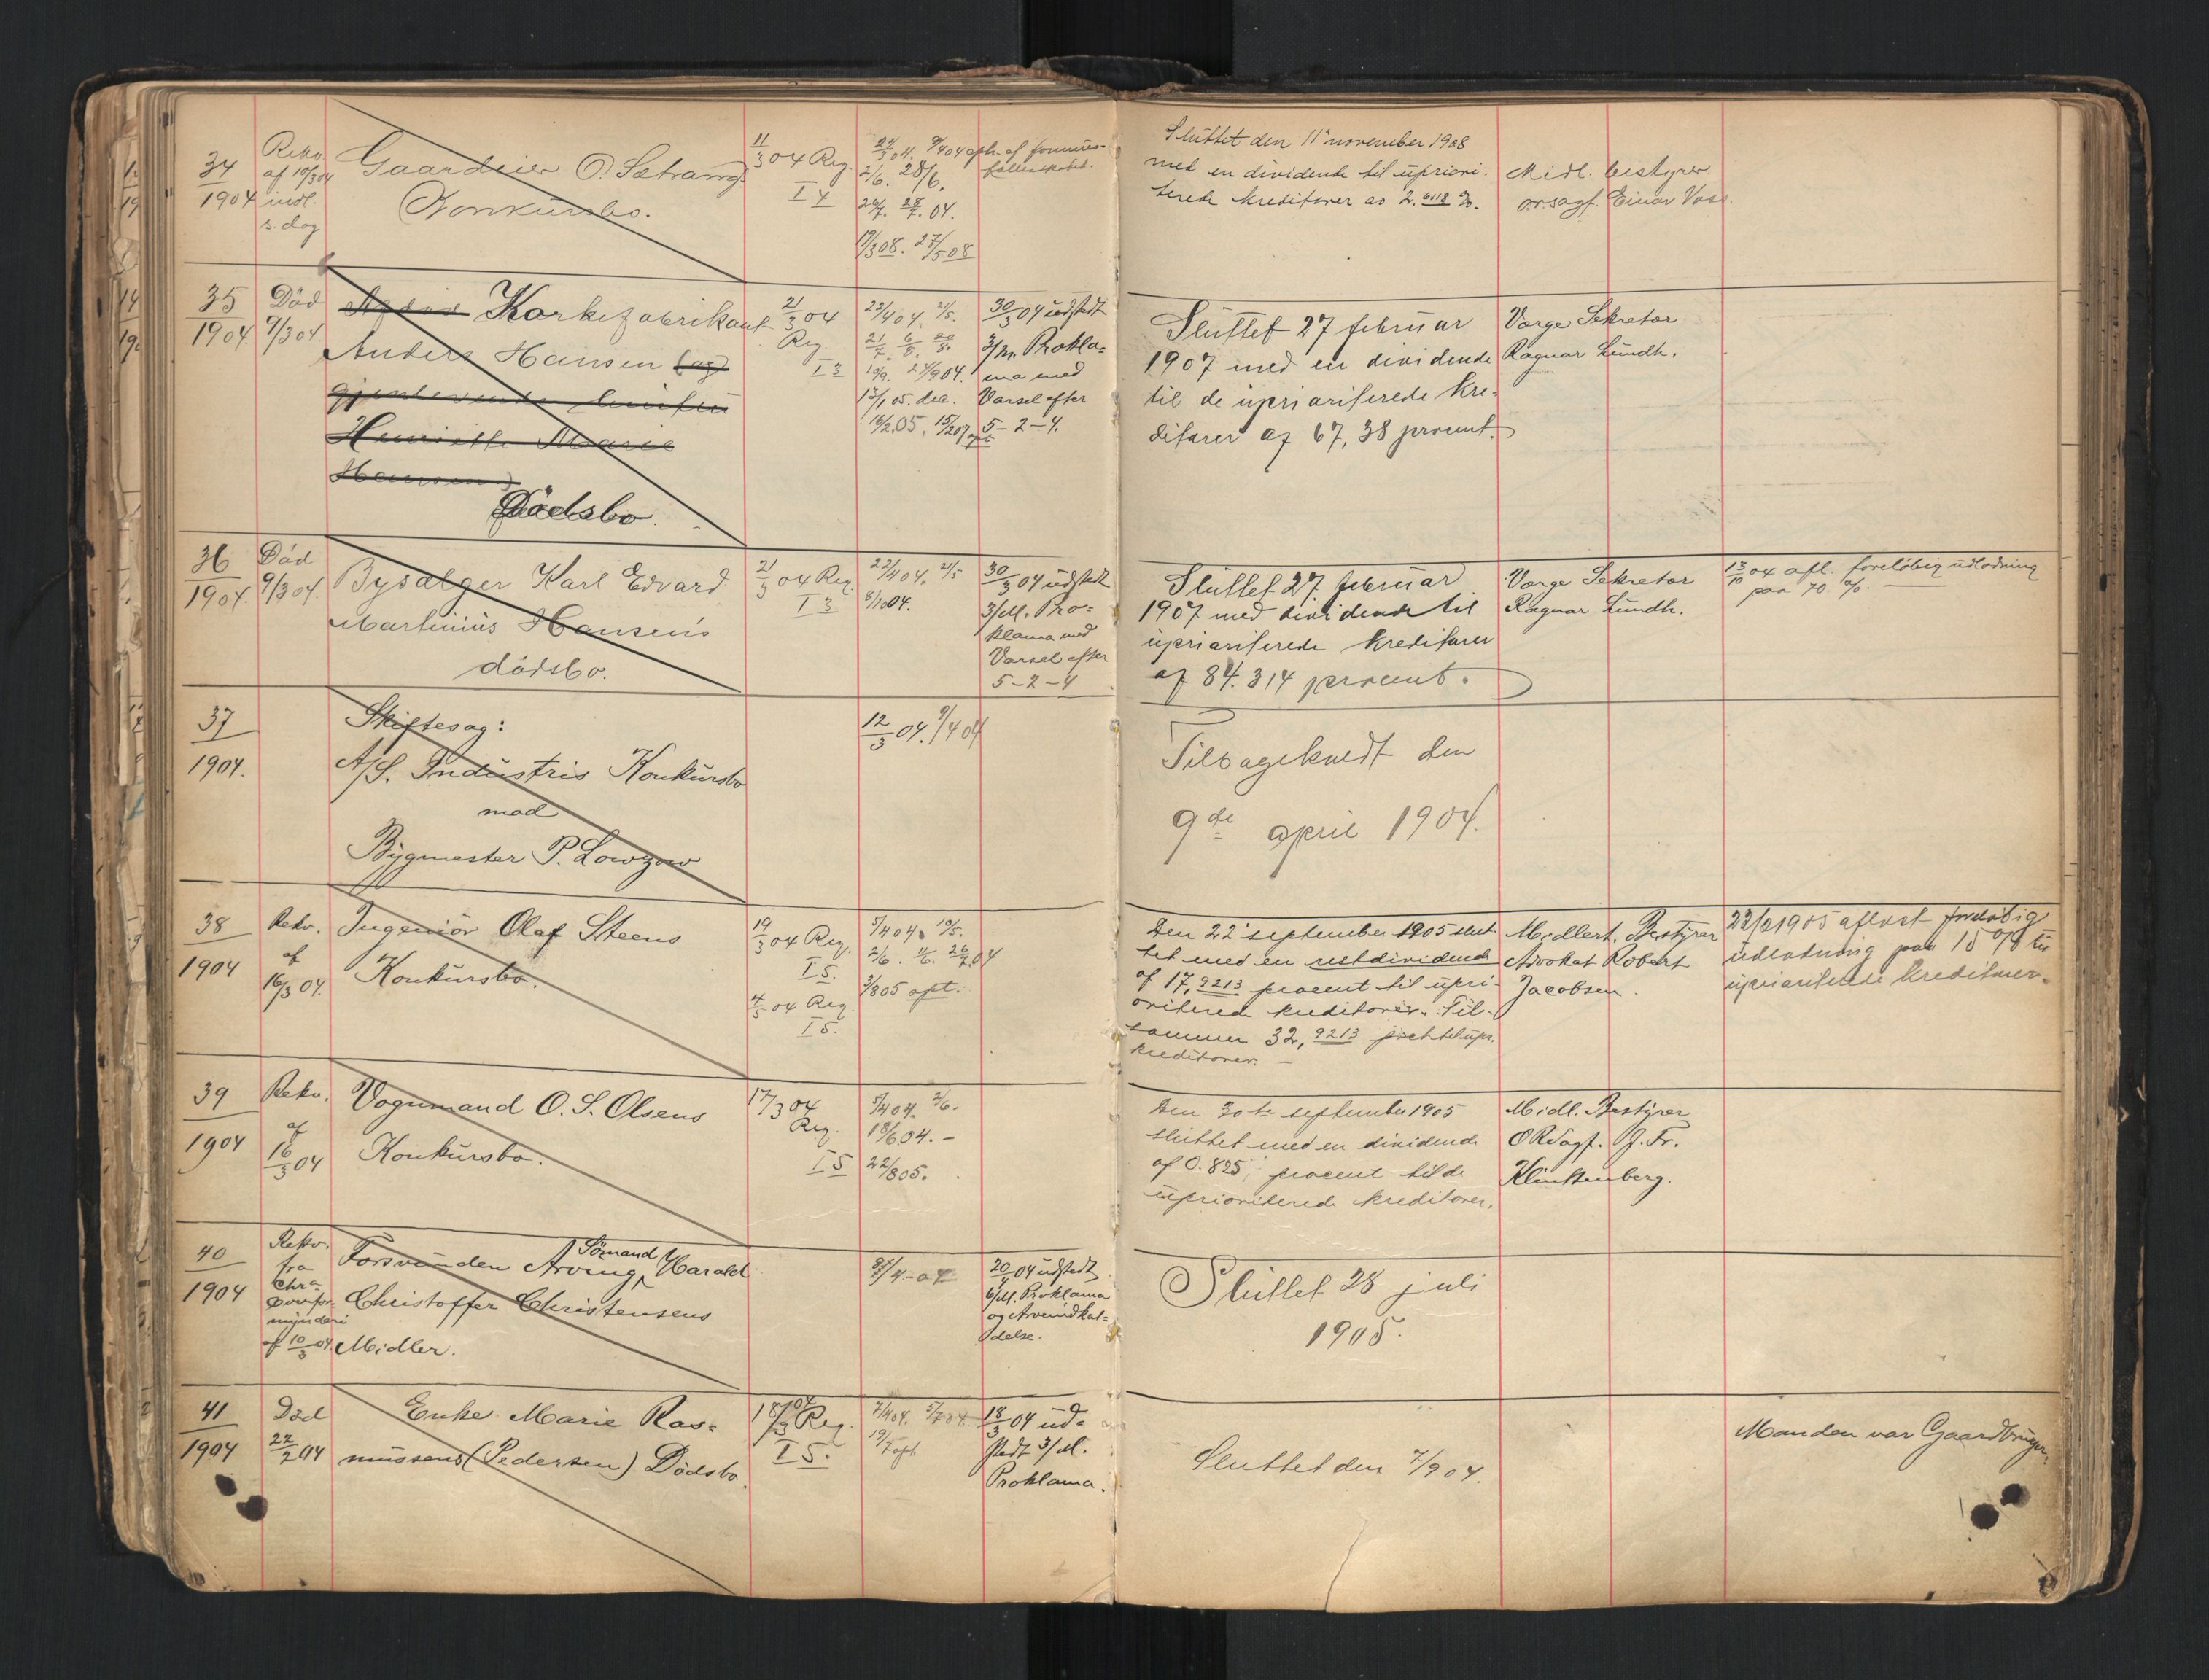 34
1904
Rekv.
af 10/3 04
indl.
s. dag
Gaardeier O. Sætrangs
Konkursbo.
11/3 04 Reg.
28/6.
28/7. 04.
19/3 08. 27/5 08
Sluttet den 11 november 1908
med en dividende til upriori-
terede kreditorer 2.6118 %.
Midl. bestyrer
o.r.sagf. Einar Voss.
35
1904
Död
9/3 04
Korkefabrikant
Anders Hansen (og
gjenlevende
Henriette Marie
Hansen)
Dödsbo.
21/3 04
Reg.
I 3
23/4 04. 2/5.
19/9. 04.
13/1 05. dec.
16/2 05. 15/2 07
30/3 04 udstedt
3/m. Prokla-
ma med
Varsel efter
5-2-4.
Sluttet 27 februar
1907 med en dividende
til de uprioriterede kre-
ditorer af 67,38 procent.
Værge Sekretær
Ragnar Lundh.
36
1904.
Död
9/3 04.
Bysælger Karl Edvard
Martinius Hansens
dödsbo.
21/3 04 Reg.
I 3
23/4 04. 2/5
8/10 04.
30/3 04 udstedt
3/M. Pro-
klama med
Varsel efter
5-2-4
Sluttet 27 februar
1907 med dividende til
uprioriterede kreditorer
af 84.314 procent.
Værge Sekretær
Ragnar Lundh.
13/10 04 afl. foreløbig udlodning
paa 70. %.
37
1904.
Skiftesag:
A/S. Industris Konkursbo
mod
Bygmester P. Lowzow
12/3 04. 9/4 04
Tilbagekaldt den
9de april 1904.
38
1904
Rekv.
af
16/3 04.
Ingeniör Olaf Steens
Konkursbo.
19/3 04 Reg.
I 5.
4/5 04 Reg.
I 5.
5/4 04. 10/5.
2/6. 26/7 04
3/8 05 opt.
Den 22 september 1905 slut-
tet med en restdividende
af 17,9213 procent til upri-
oriterede kreditorer. Til-
sammen 32,9213 prct til upr.
kreditorer.
Midlert. Bestyrer
Advokat Robert
Jacobsen.
1905 aflært foreløbig
udlodning paa 15 % til
uprioriterede kreditorer.
39
1904
Rekv.
af
16/3 04
Vognmand O. S. Olsens
Konkursbo.
17/3 04
Reg.
I 5
5/4 04. 2/6.
18/6 04. -
22/8 05.
Den 20de september 1905
sluttet med en dividende
af 0.825 procent til de
uprioriterede kreditorer.
Midl. Bestyrer
ORSagf. J. Fr.
Klinkenberg.
40
1904
Rekv.
fra
Chra
overfor-
mynderi
af 10/3 04.
Forsvunden Arving, Sömand Harald
Christoffer Christensens
Midler.
9/4-04
20/4 04 udstedt
6/M. Proklama
og Arveindkal-
delse.
Sluttet 28 juli
1905.
41
1904
Död
22/2 04
Enke Marie Ras-
mussens (Pedersen) Dödsbo.
18/3 Reg.
I 5.
7/4 04.
18/3 04 ud-
stedt 3/M.
Proklama.
Sluttet den 7/9 04.
Manden var Gaardbruger.